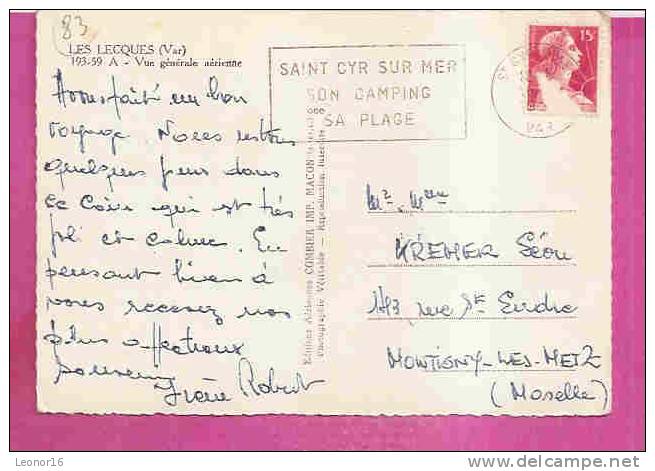 83
LES LECQUES (Var)
193-59 A - Vue générale aérienne
SAINT CYR SUR MER
SON CAMPING
SA PLAGE
15F
VAR
Avons fait un bon
voyage. Nous restons
quelques jours dans
ce Coin qui est très
joli et calme. En
pensant bien à
vous recevez nos
plus affectueux
souvenirs
Irène Robert
Editions Aériennes COMBIER IMP. MACON
Photographie Véritable - Reproduction Interdite
Mr. Mme
KREMER Léon
rue St Endre
MONTIGNY-LES-METZ
(Moselle)
Leonor16
delcampe.net